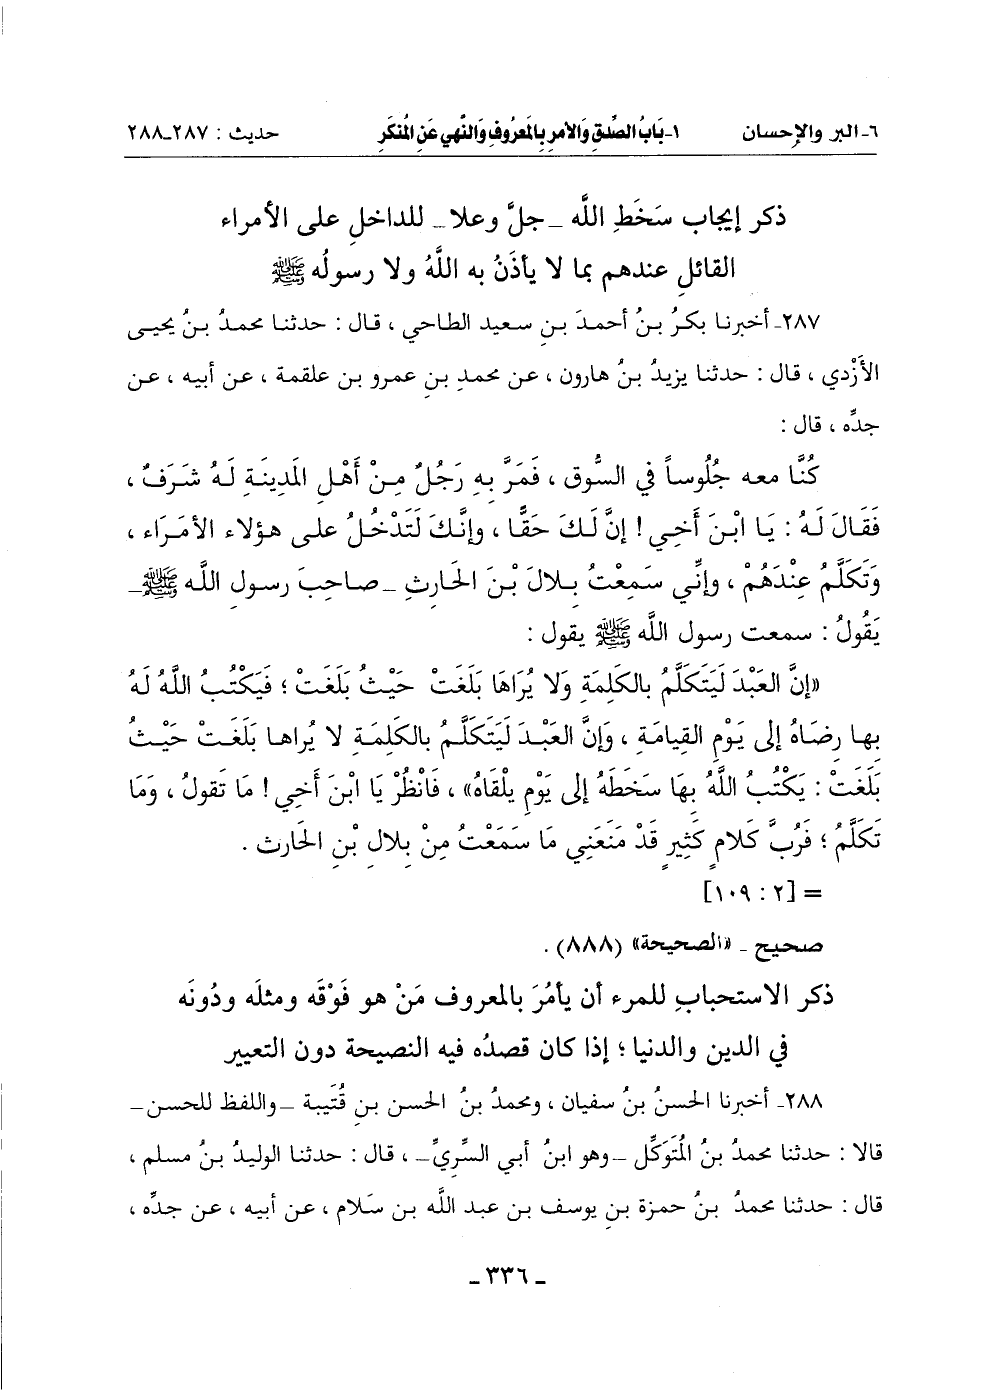 ٦ـ البر والإحسان ١ـ بَابُ الصِّدقِ وَالأمرِ بِالمَعرُوفِ وَالنَّهيِ عَنِ المُنكَرِ حديث : ٢٨٧ـ٢٨٨
ذكر إيجاب سَخَطِ اللَّه ـ جلَّ وعلا ـ للداخلِ على الأمراء
القائلِ عندهم بما لا يأذَنُ به اللَّهُ ولا رسولُه ﷺ
٢٨٧ـ أخبرنا بكرُ بنُ أحمدَ بنِ سعيد الطاحي ، قال : حدثنا محمدُ بنُ يحيى
الأَزْدي ، قال : حدثنا يزيدُ بنُ هارون ، عن محمدِ بنِ عمرو بن علقمة ، عن أبيه ، عن
جدِّه ، قال :
كُنَّا معه جُلُوساً في السُّوق ، فَمَرَّ بِهِ رَجُلٌ مِنْ أَهْلِ المَدِينَةِ لَهُ شَرَفٌ ،
فَقَالَ لَهُ : يَا ابْنَ أَخِي ! إنَّ لَكَ حَقًّا ، وإنَّكَ لَتَدْخُلُ على هؤلاء الأمَرَاء ،
وَتَكَلَّمُ عِنْدَهُمْ ، وإنِّي سَمِعْتُ بِلالَ بْنَ الحَارثِ ـ صاحِبَ رسولِ اللَّه ﷺ ـ
يَقُولُ : سمعت رسول اللَّه ﷺ يقول :
«إنَّ العَبْدَ لَيَتَكَلَّمُ بالكَلِمَةِ وَلا يُرَاهَا بَلَغَتْ حَيْثُ بَلَغَتْ ؛ فَيَكْتُبُ اللَّهُ لَهُ
بِها رِضَاهُ إلى يَوْمِ القِيامَةِ ، وَإنَّ العَبْدَ لَيَتَكَلَّمُ بالكَلِمَةِ لا يُراها بَلَغَتْ حَيْثُ
بَلَغَتْ : يَكْتُبُ اللَّهُ بِهَا سَخَطَهُ إلى يَوْمِ يلْقَاهُ» ، فَانْظُرْ يا ابْنَ أَخِي ! مَا تَقولُ ، وَمَا
تَكَلَّمُ ؛ فَرُبَّ كَلامٍ كَثِيرٍ قَدْ مَنَعَنِي مَا سَمَعْتُ مِنْ بِلالِ بْنِ الحَارث .
= [٢ : ١٠٩]
صحيح ـ «الصحيحة» (٨٨٨) .
ذكر الاستحبابِ للمرء أن يأمُرَ بالمعروف مَنْ هو فَوْقَه ومثلَه ودُونَه
في الدين والدنيا ؛ إذا كان قصدُه فيه النصيحة دون التعيير
٢٨٨ـ أخبرنا الحسنُ بنُ سفيان ، ومحمدُ بنُ الحسن بنِ قُتَيبة ـ واللفظ للحسن ـ
قالا : حدثنا محمدُ بنُ المُتَوَكِّل ـ وهو ابنُ أبي السَّرِيِّ ـ ، قال : حدثنا الوليدُ بنُ مسلم ،
قال : حدثنا محمدُ بنُ حمزة بنِ يوسف بن عبد اللَّه بن سَلام ، عن أبيه ، عن جدِّه ،
ـ ٣٣٦ ـ